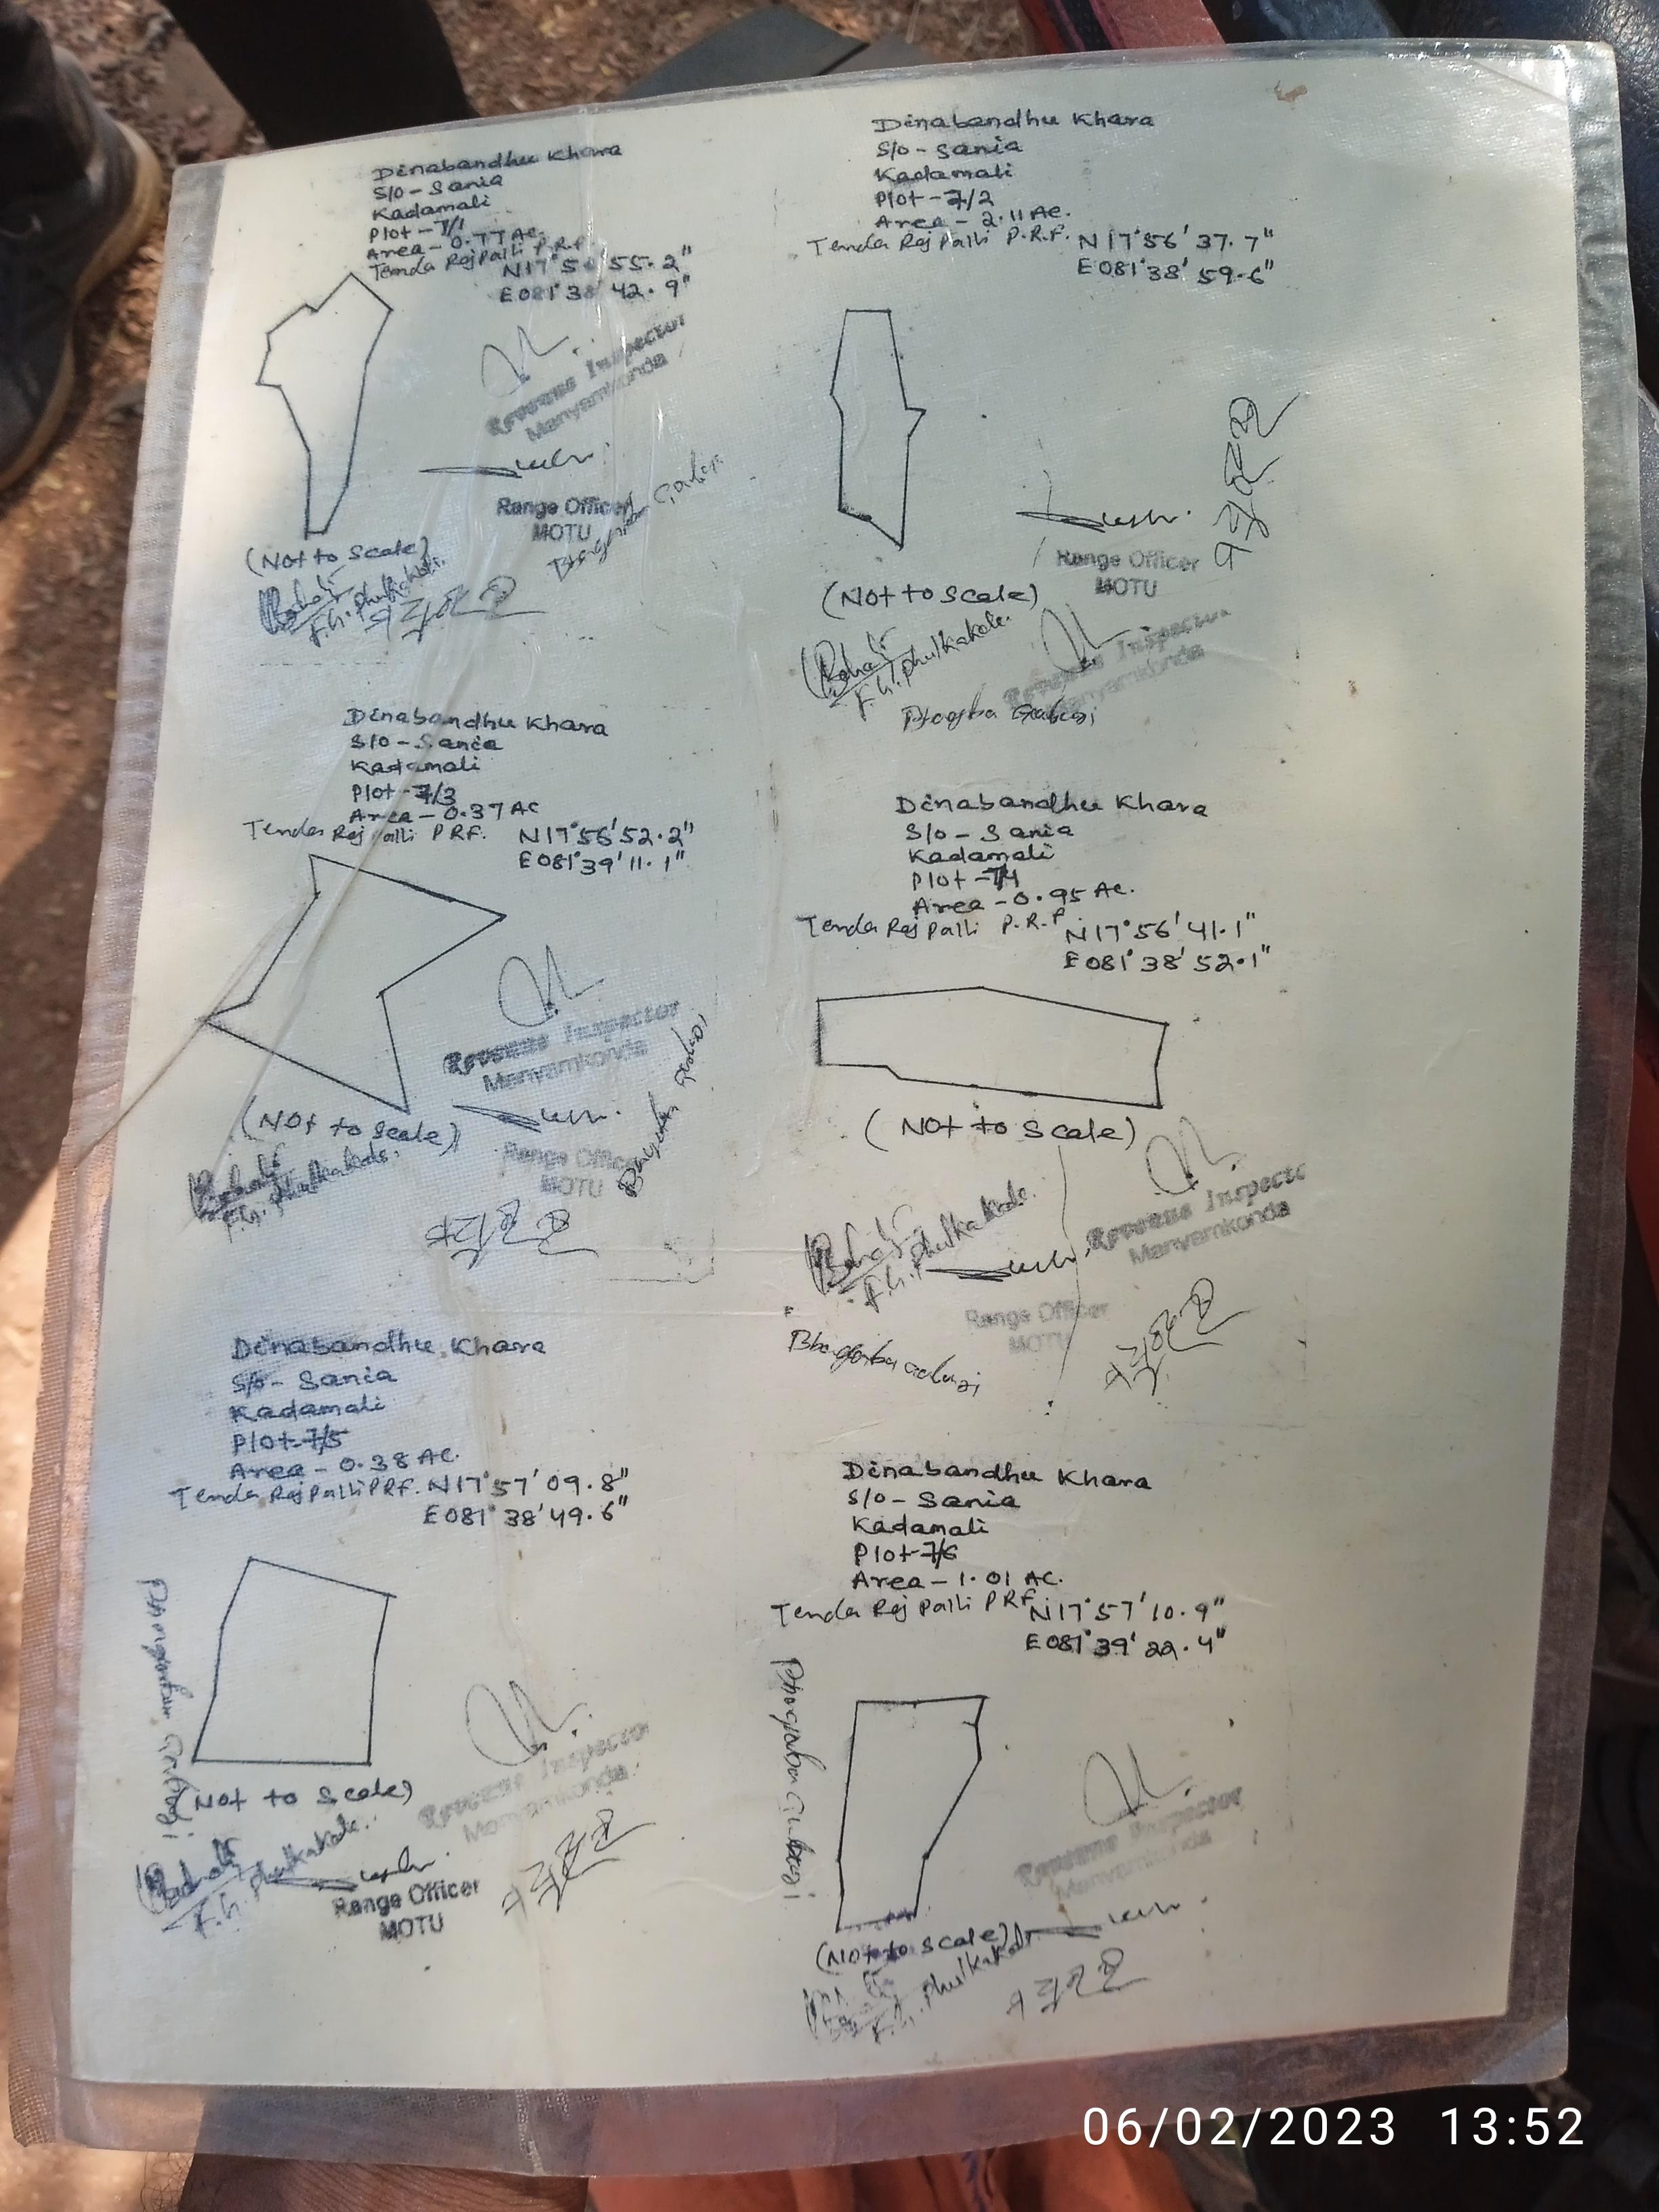 Dinabandhu Khara
S/o - Sania
Kadamali
Plot - 7/1
Area - 0.77 AC.
Tenda Raj Palli P.R.F.
N17°56'55.2"
E081°38'42.9"
Revenue Inspector
Manyamkonda
Range Officer
MOTU
(Not to Scale)
F.G. Phulkakole.
Dinabandhu Khara
S/o - Sania
Kadamali
Plot - 7/2
Area - 2.11 AC.
Tenda Raj Palli P.R.F. N17°56'37.7"
E081°38'59.6"
Range Officer
MOTU
(Not to Scale)
F.G. Phulkakole.
Revenue Inspector
Manyamkonda
Dinabandhu Khara
S/o - Sania
Kadamali
Plot - 7/3
Area - 0.37 AC
Tenda Raj Palli PRF. N17°56'52.2"
E081°39'11.1"
Revenue Inspector
Manyamkonda
(Not to Scale)
F.G. Phulkakole.
Range Officer
MOTU
Dinabandhu Khara
S/o - Sania
Kadamali
Plot - 7/4
Area - 0.95 AC.
Tenda Raj Palli P.R.F. N17°56'41.1"
E081°38'52.1"
(Not to Scale)
F.G. Phulkakole.
Revenue Inspector
Manyamkonda
Range Officer
MOTU
Dinabandhu Khara
S/o - Sania
Kadamali
Plot - 7/5
Area - 0.38 AC.
Tenda Raj Palli PRF. N17°57'09.8"
E081°38'49.6"
(Not to Scale)
Revenue Inspector
Manyamkonda
F.G. Phulkakole.
Range Officer
MOTU
Dinabandhu Khara
S/o - Sania
Kadamali
Plot - 7/6
Area - 1.01 AC.
Tenda Raj Palli PRF N17°57'10.9"
E081°39'22.4"
Revenue Inspector
Manyamkonda
(Not to Scale)
F.G. Phulkakole
06/02/2023 13:52